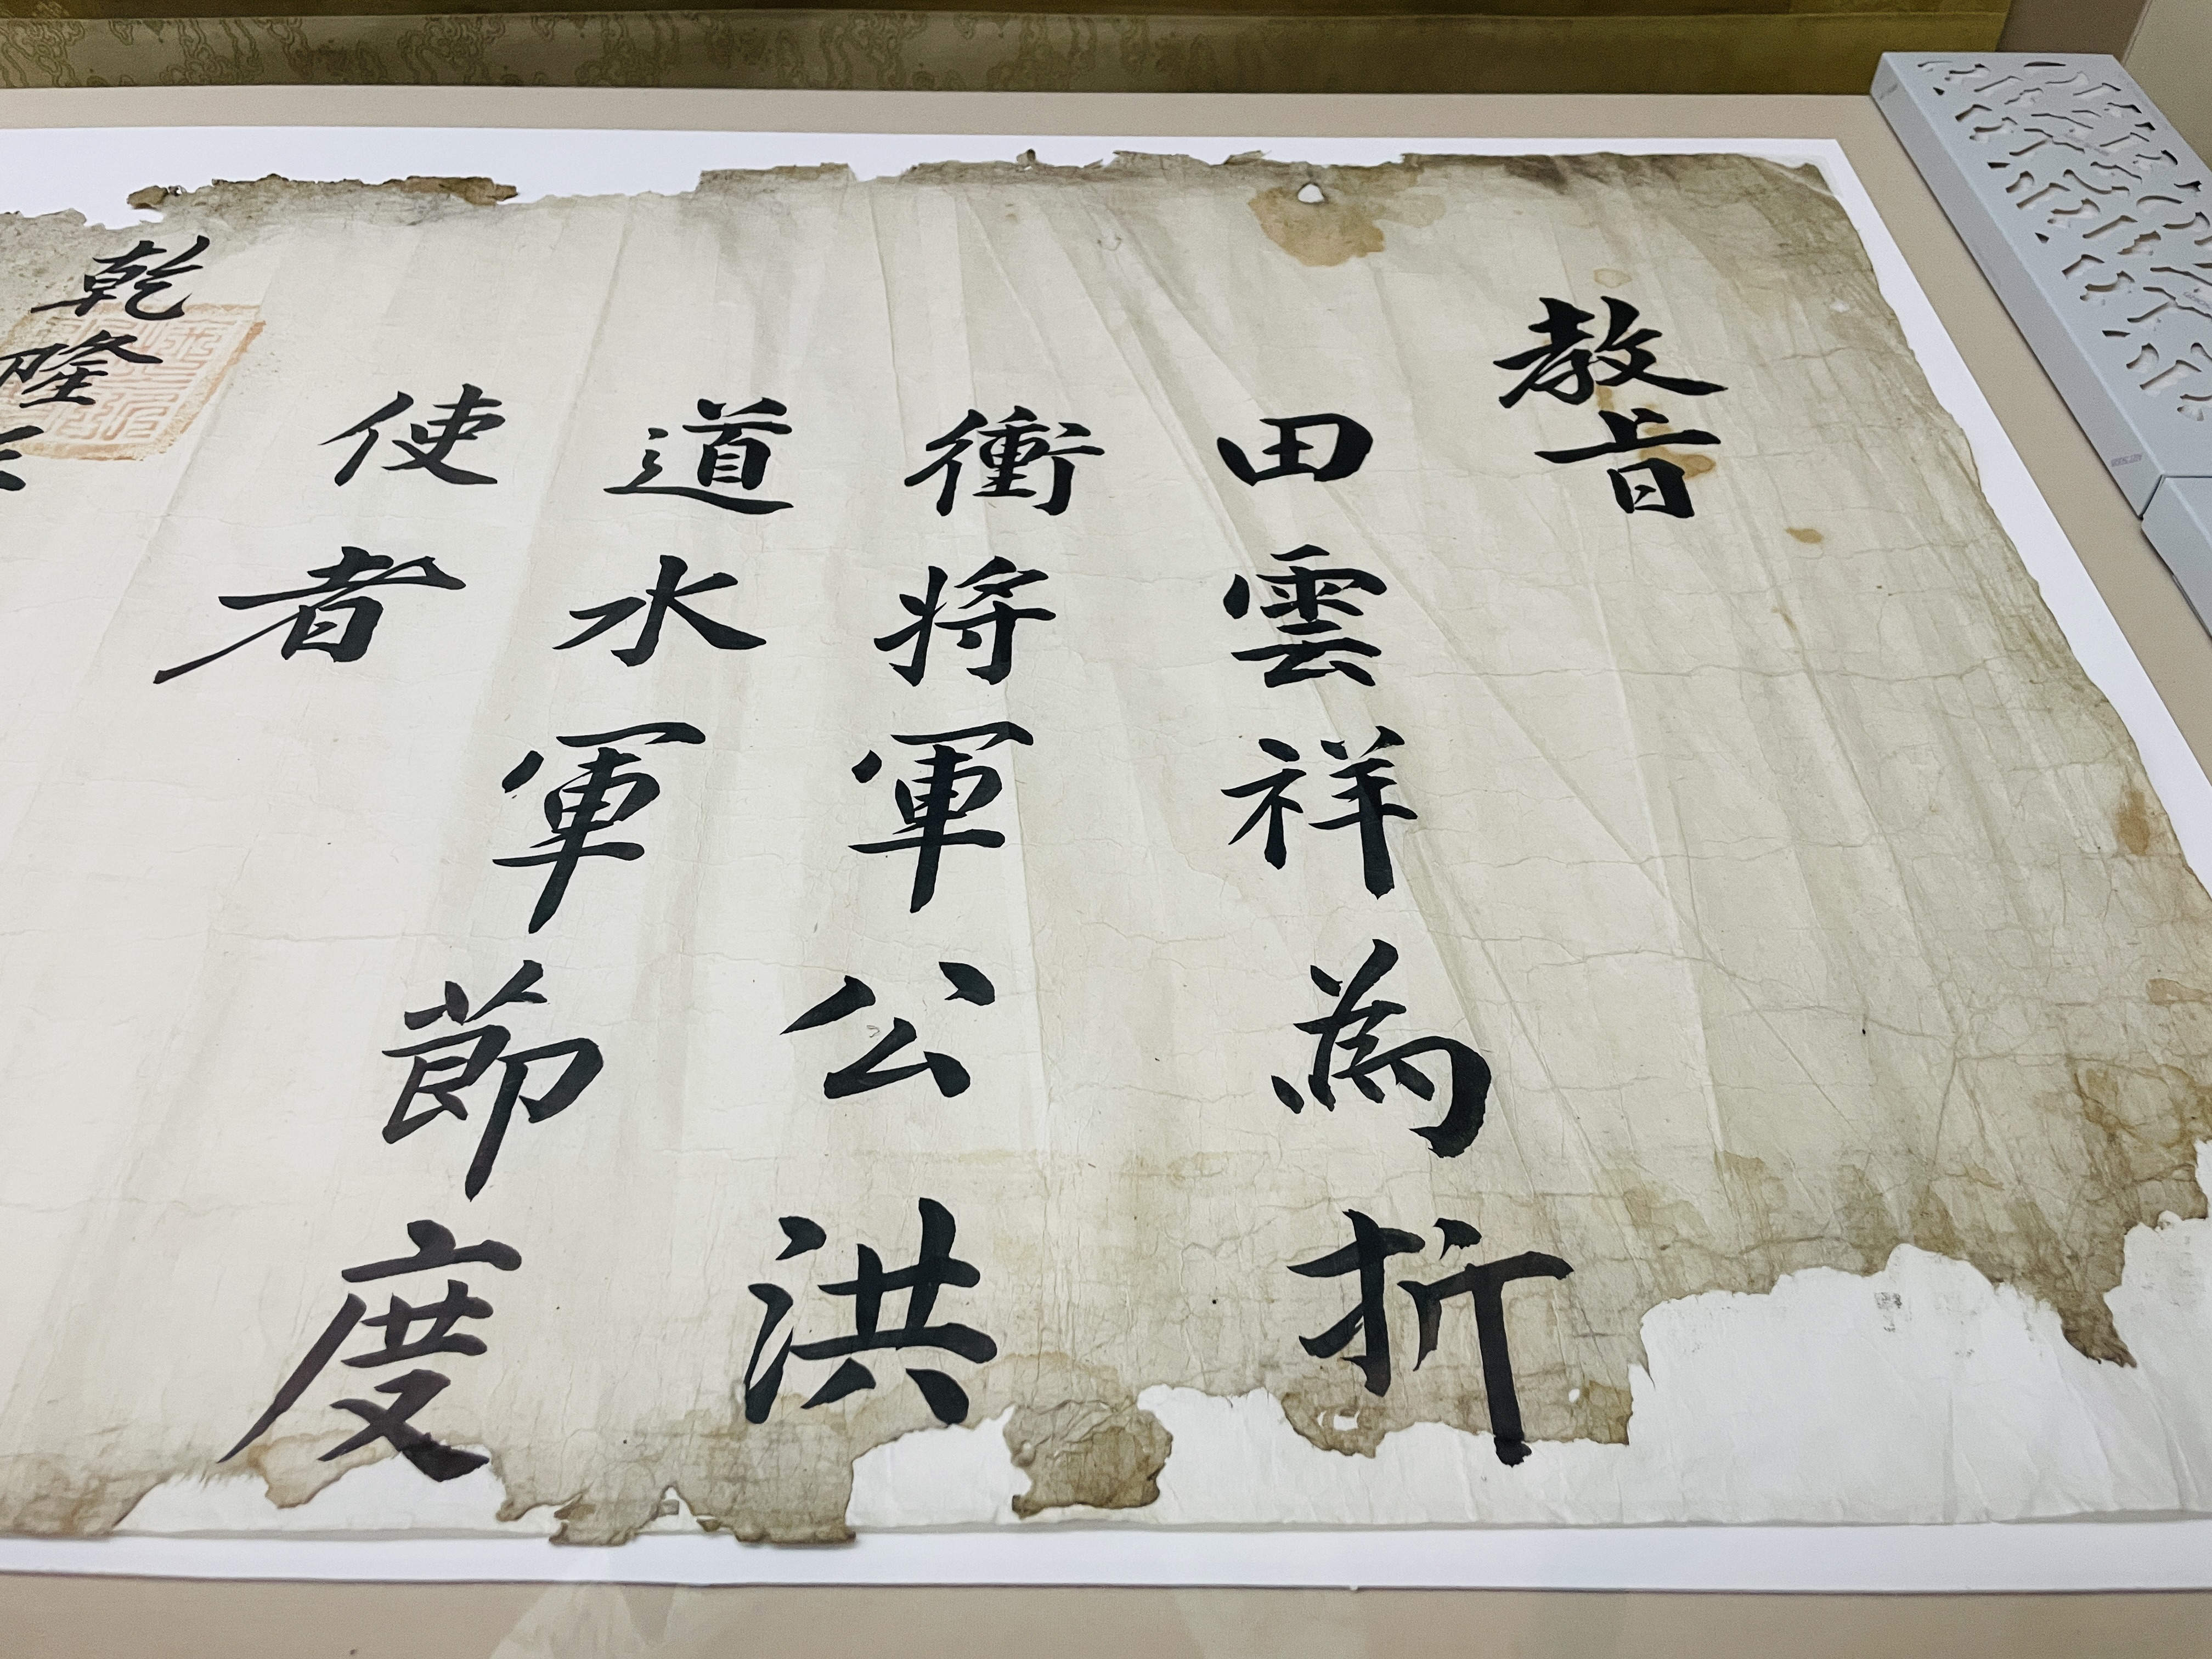 教旨
田雲祥為折
衝将軍公洪
道水軍節度
使者
乾隆